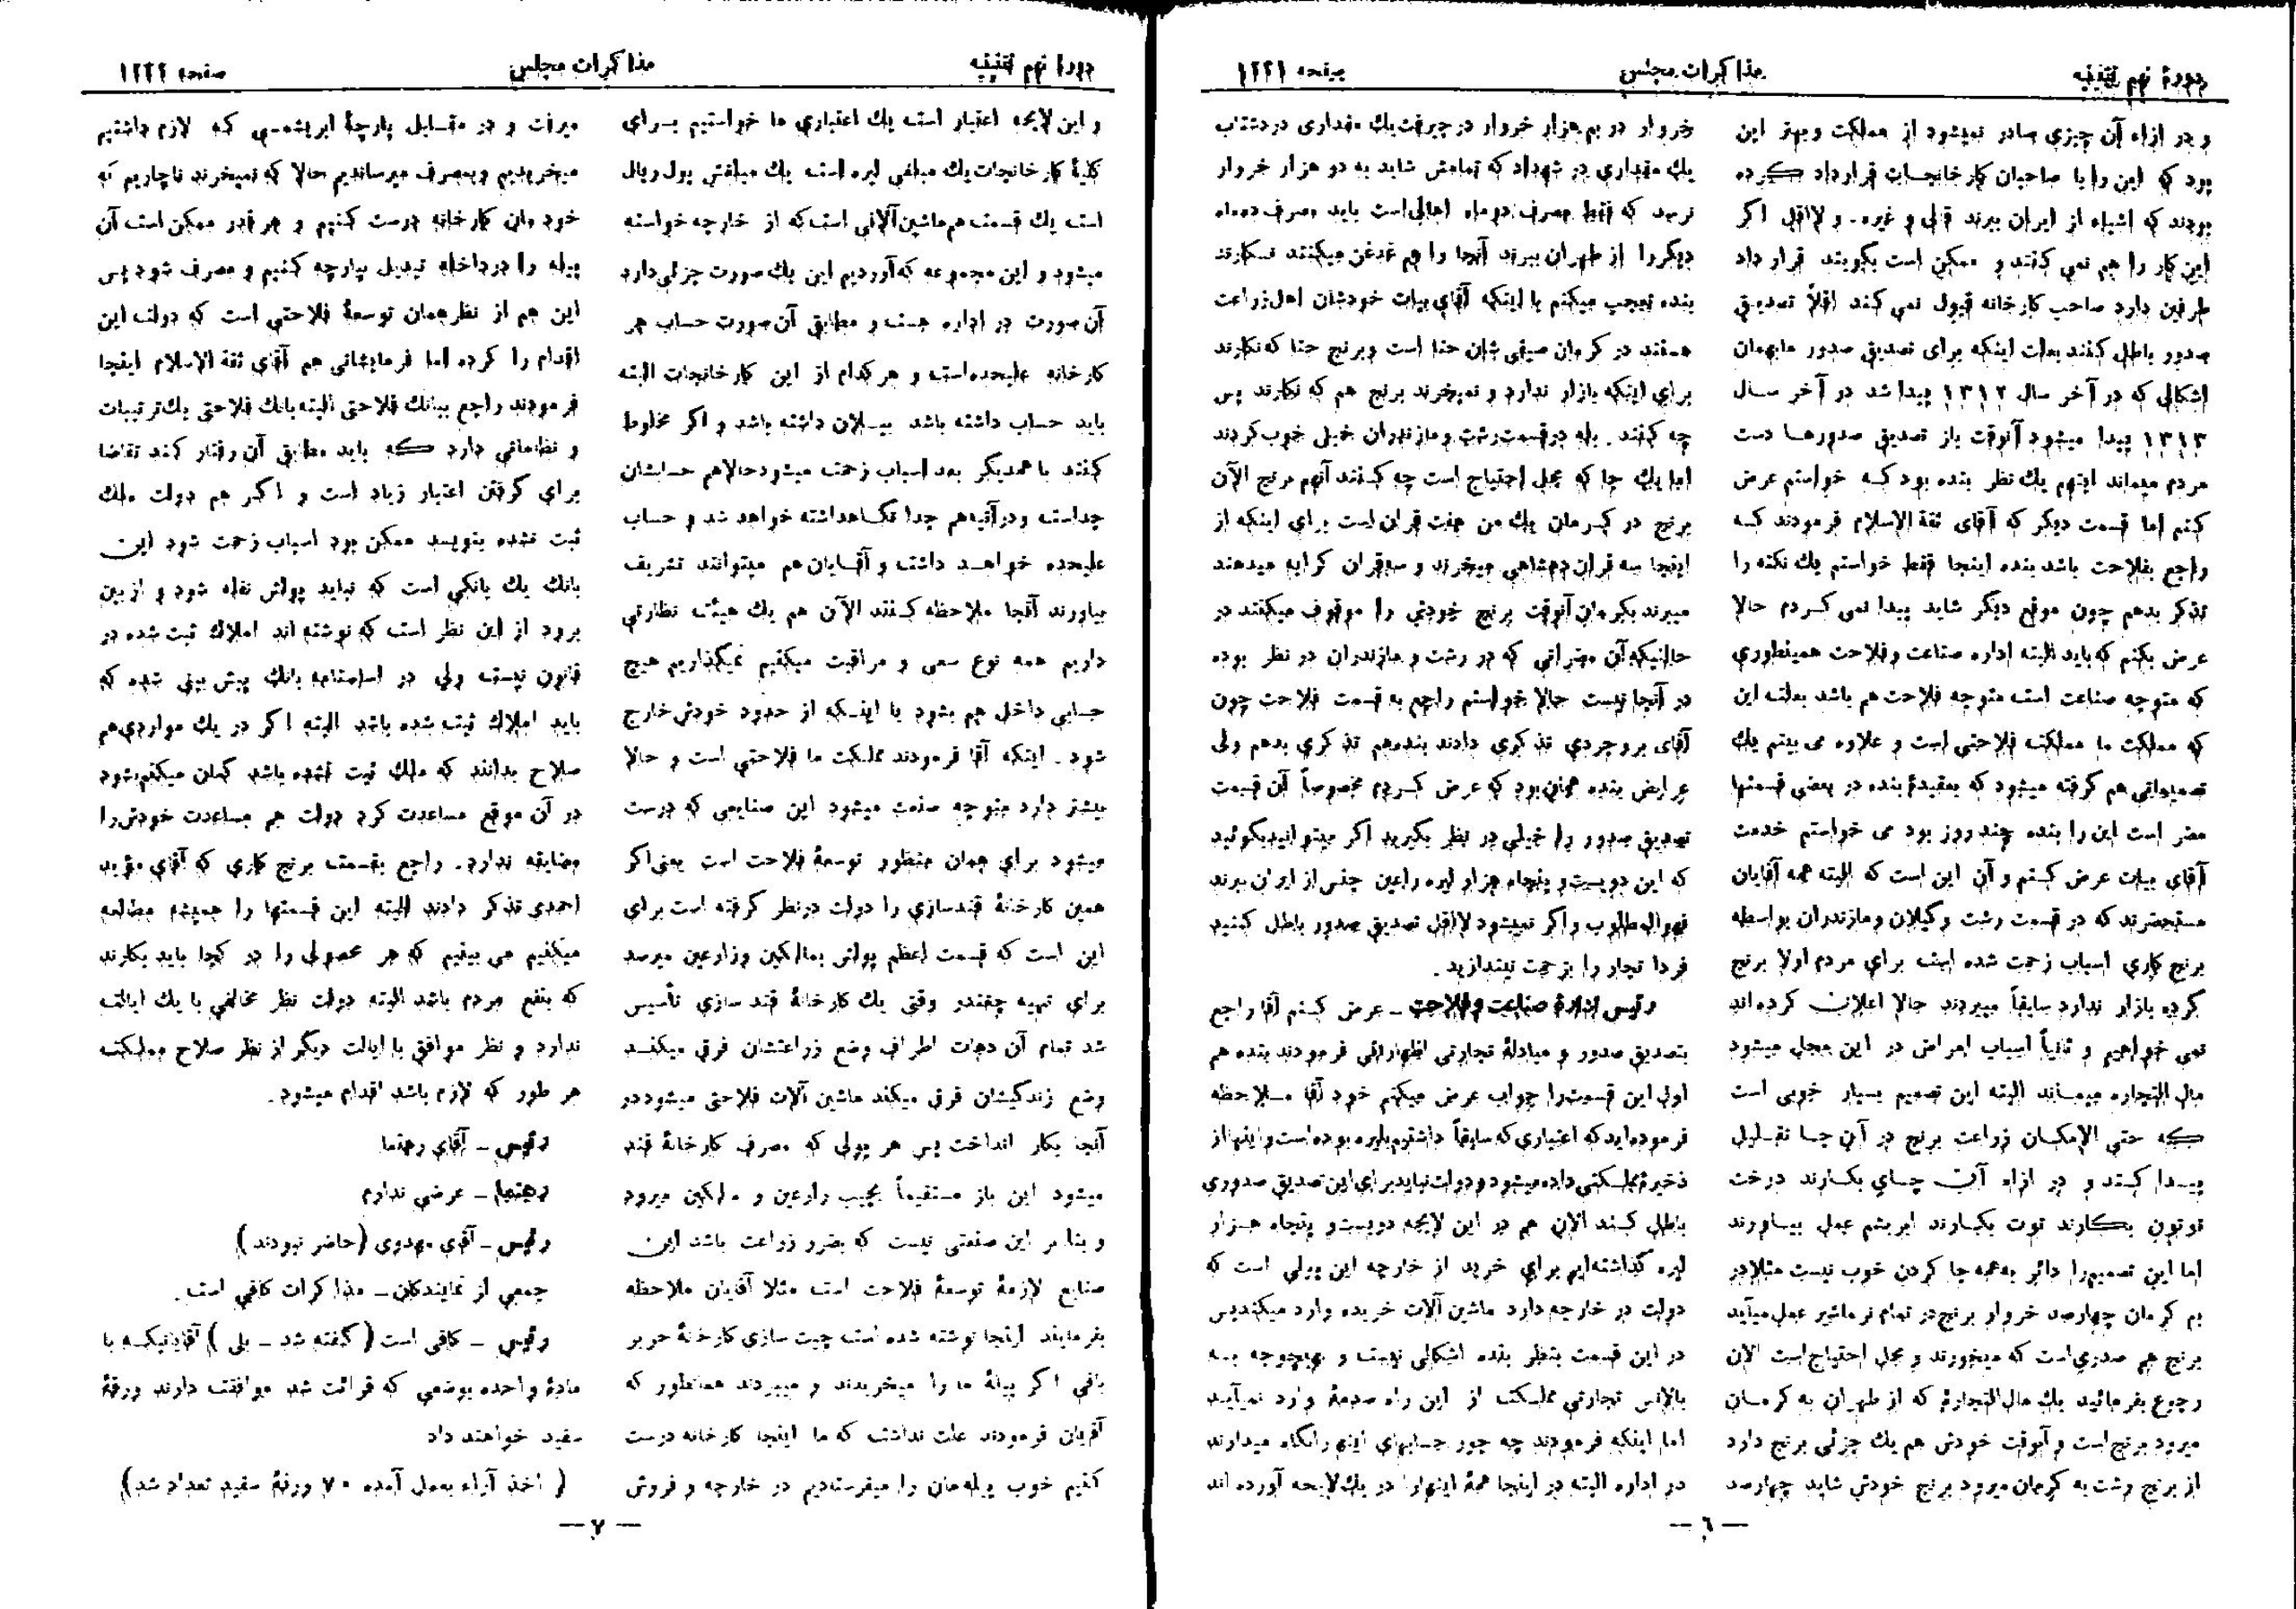 دورهٔ نهم تقنینیه
مذاکرات مجلس
صفحه ۱۲۲۱
و در ازاء آن چیزی صادر نمیشود از مملکت و بهتر این
بود که این را با صاحبان کارخانجات قرارداد کرده
بودند که اشیاء از ایران ببرند قالی و غیره. و لااقل اگر
این کار را هم نمی کنند و ممکن است بگویند قرار داد
طرفین دارد صاحب کارخانه قبول نمی کند اقلاً تصدیق
صدور باطل کنند بعلت اینکه برای تصدیق صدور مابهمان
اشکالی که در آخر سال ۱۳۱۲ پیدا شد در آخر سال
۱۳۱۳ پیدا میشود آنوقت باز تصدیق صدورها دست
مردم میماند اینهم یك نظر بنده بود که خواستم عرض
کنم اما قسمت دیگر که آقای ثقة الاسلام فرمودند که
راجع بفلاحت باشد بنده اینجا فقط خواستم یك نکته را
تذکر بدهم چون موقع دیگر شاید پیدا نمی کردم حالا
عرض بکنم که باید البته اداره صناعت و فلاحت همینطوری
که متوجه صناعت است متوجه فلاحت هم باشد بعلت این
که مملکت ما مملکت فلاحتی است و علاوه می بینم یك
تصمیماتی هم گرفته میشود که بعقیدهٔ بنده در بعضی قسمتها
مضر است این را بنده چند روز بود می خواستم خدمت
آقای بیات عرض کنم و آن این است که البته همه آقایان
مستحضرند که در قسمت رشت و گیلان و مازندران بواسطه
برنج کاری اسباب زحمت شده است برای مردم اولا برنج
کرده بازار ندارد سابقاً میبردند حالا اعلان کرده اند
نمی خواهیم و ثانیاً اسباب امراض در این محل میشود
مال التجاره میماند البته این تصمیم بسیار خوبی است
که حتی الامکان زراعت برنج در آن جا تقلیل
پیدا کند و در ازاء آن چای بکارند درخت
توتون بکارند توت بکارند ابریشم عمل بیاورند
اما این تصمیم را دائر به همه جا کردن خوب نیست مثلا در
بم کرمان چهارصد خروار برنج در تمام نرماشیر عمل میآید
برنج هم صدری است که میخورند و محل احتیاج است الان
رجوع بفرمائید یك مال التجارهٔ که از طهران به کرمان
میرود برنج است و آنوقت خودش هم یك جزئی برنج دارد
از برنج رشت به کرمان میرود برنج خودش شاید چهارصد
خروار در بم هزار خروار در جیرفت یك مقداری در دشتاب
یك مقداری در شهداد که تمامش شاید به دو هزار خروار
نرسد که فقط مصرف دو ماه اهالی است باید مصرف ده ماه
دیگر را از طهران ببرند آنجا را هم غدغن میکنند نکارند
بنده تعجب میکنم با اینکه آقای بیات خودشان اهل زراعت
هستند در کرمان صیفی شان حنا است و برنج حنا که نکارند
برای اینکه بازار ندارد و نمیخرند برنج هم که نکارند پس
چه کنند. بله در قسمت رشت و مازندران خیلی خوب کردند
اما یك جا که محل احتیاج است چه کنند آنهم برنج الآن
برنج در کرمان یك من هفت قران است برای اینکه از
اینجا سه قران دهشاهی میخرند و سه قران کرایه میدهند
میبرند بکرمان آنوقت برنج خودش را موقوف میکنند در
حالتیکه آن مضراتی که در رشت و مازندران در نظر بوده
در آنجا نیست حالا خواستم راجع به قسمت فلاحت چون
آقای بروجردی تذکری دادند بنده هم تذکری بدهم ولی
عرایض بنده همان بود که عرض کردم مخصوصاً آن قسمت
تصدیق صدور را خیلی در نظر بگیرید اگر میتوانید بگوئید
که این دویست و پنجاه هزار لیره را عین جنس از ایران ببرند
فهوالمطلوب و اگر نمیشود لااقل تصدیق صدور باطل کنید
فردا تجار را بزحمت نیندازید.
رئیس ادارهٔ صناعت و فلاحت ــ عرض کنم آقا راجع
بتصدیق صدور و مبادلهٔ تجارتی اظهاراتی فرمودند بنده هم
اول این قسمت را جواب عرض میکنم خود آقا ملاحظه
فرموده اید که اعتباری که سابقاً داشتیم بلیره بوده است و اینها از
ذخیرهٔ مملکتی داده میشود و دولت نباید برای این تصدیق صدوری
باطل کند الان هم در این لایحه دویست و پنجاه هزار
لیره گذاشته ایم برای خرید از خارجه این پولی است که
دولت در خارجه دارد ماشین آلات خریده وارد میکند پس
در این قسمت بنظر بنده اشکالی نیست و بهیچوجه به
بالانس تجارتی مملکت از این راه صدمهٔ وارد نمیآید
اما اینکه فرمودند چه جور حسابهای اینها را نگاه میدارند
در اداره البته در اینجا همهٔ اینها را در یك لایحه آورده اند
ــ ٦ ــ
دورهٔ نهم تقنینیه
مذاکرات مجلس
صفحه ۱۲۲۲
و این لایحه اعتبار است یك اعتباری ما خواستیم برای
کلیهٔ کارخانجات یك مبلغی لیره است یك مبلغش پول ریال
است یك قسمت هم ماشین آلاتی است که از خارجه خواسته
میشود و این مجموعه که آوردیم این یك صورت جزئی دارد
آن صورت در اداره هست و مطابق آن صورت حساب هر
کارخانه علیحده است و هر کدام از این کارخانجات البته
باید حساب داشته باشد بیلان داشته باشد و اگر مخلوط
کنند با همدیگر بعد اسباب زحمت میشود حالا هم حسابشان
جداست و در آتیه هم جدا نگاهداشته خواهد شد و حساب
علیحده خواهند داشت و آقایان هم میتوانند تشریف
بیاورند آنجا ملاحظه کنند الآن هم یك هیئت نظارتی
داریم همه نوع سعی و مراقبت میکنیم نمیگذاریم هیچ
حسابی داخل هم بشود یا اینکه از حدود خودش خارج
شود. اینکه آقا فرمودند مملکت ما فلاحتی است و حالا
بیشتر دارد متوجه صنعت میشود این صنایعی که درست
میشود برای همان منظور توسعهٔ فلاحت است یعنی اگر
همین کارخانهٔ قندسازی را دولت در نظر گرفته است برای
این است که قسمت اعظم پولش بمالکین و زارعین میرسد
برای تهیه چغندر وقتی یك کارخانهٔ قند سازی تأسیس
شد تمام آن دهات اطراف وضع زراعتشان فرق میکند
وضع زندگیشان فرق میکند ماشین آلات فلاحتی میشود در
آنجا بکار انداخت پس هر پولی که مصرف کارخانهٔ قند
میشود این باز مستقیماً بجیب زارعین و مالکین میرود
و بنابر این صنعتی نیست که بضرر زراعت باشد این
صنایع لازمهٔ توسعهٔ فلاحت است مثلا آقایان ملاحظه
بفرمایند اینجا نوشته شده است چیت سازی کارخانهٔ حریر
بافی اگر پیلهٔ ما را میخریدند و میبردند همانطور که
آقایان فرمودند علت نداشت که ما اینجا کارخانه درست
کنیم خوب پیله مان را میفرستادیم در خارجه و فروش
میرفت و در مقابل پارچهٔ ابریشمی که لازم داشتیم
میخریدیم و بمصرف میرساندیم حالا که نمیخرند ناچاریم که
خودمان کارخانه درست کنیم و هر قدر ممکن است آن
پیله را در داخله تبدیل بپارچه کنیم و مصرف شود پس
این هم از نظر همان توسعهٔ فلاحتی است که دولت این
اقدام را کرده اما فرمایشاتی هم آقای ثقة الاسلام اینجا
فرمودند راجع ببانك فلاحتی البته بانك فلاحتی یك ترتیبات
و نظاماتی دارد که باید مطابق آن رفتار کند تقاضا
برای گرفتن اعتبار زیاد است و اگر هم دولت ملك
ثبت نشده بنویسد ممکن بود اسباب زحمت شود این
بانك یك بانکی است که نباید پولش نفله شود و از بین
برود از این نظر است که نوشته اند املاك ثبت شده در
قانون نیست ولی در اساسنامه بانك پیش بینی شده که
باید املاك ثبت شده باشد البته اگر در یك مواردی هم
صلاح بدانند که ملك ثبت نشده باشد گمان میکنم بشود
در آن موقع مساعدت کرد دولت هم مساعدت خودش را
مضایقه ندارد. راجع بقسمت برنج کاری که آقای مؤید
احمدی تذکر دادند البته این قسمتها را همیشه مطالعه
میکنیم می بینیم که هر محصولی را در کجا باید بکارند
که بنفع مردم باشد البته دولت نظر مخالفی با یك ایالت
ندارد و نظر موافق با ایالت دیگر از نظر صلاح مملکت
هر طور که لازم باشد اقدام میشود.
رئیس ــ آقای رهنما
رهنما ــ عرضی ندارم
رئیس ــ آقای مهدوی (حاضر نبودند)
جمعی از نمایندگان ــ مذاکرات کافی است.
رئیس ــ کافی است (گفته شد ــ بلی) آقایانیکه با
مادهٔ واحده بوضعی که قرائت شد موافقت دارند ورقهٔ
سفید خواهند داد
(اخذ آراء بعمل آمده ۷۰ ورقهٔ سفید تعداد شد)
ــ ۷ ــ